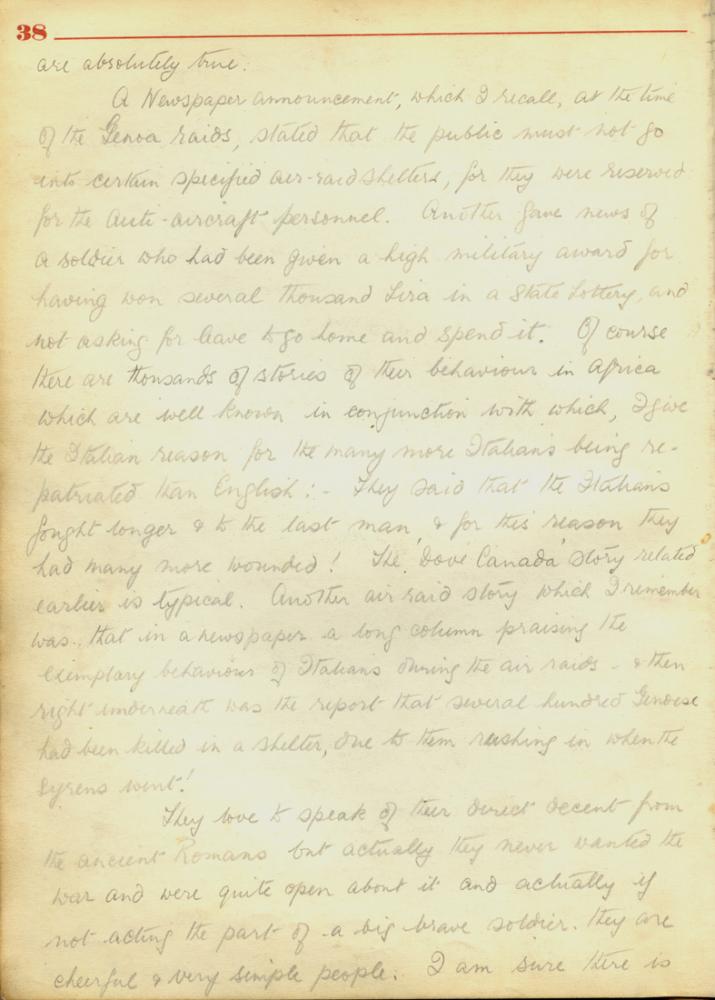 38
are absolutely true.
A Newspaper announcement, which I recall, at the time
of the Genoa raids, stated that the public must not go
into certain specified air-raid shelters, for they were reserved
for the Anti-aircraft personnel. Another gave news of
a soldier who had been given a high military award for
having won several thousand Lira in a State Lottery, and
not asking for leave to go home and spend it. Of course
there are thousands of stories of their behaviour in Africa
which are well known in conjunction with which, I give
the Italian reason for the many more Italians being re-
patriated than English :- They said that the Italians
fought longer & to the last man, & for this reason they
had many more wounded! The 'Dove Canada' story related
earlier is typical. Another air raid story which I remember
was, that in a newspaper a long column praising the
exemplary behaviour of Italians during the air raids - & then
right underneath was the report that several hundred Genoese
had been killed in a shelter, due to them rushing in when the
syrens went!
They love to speak of their direct decent from
the ancient Romans but actually they never wanted the
war and were quite open about it and actually if
not acting the part of a big brave soldier. they are
cheerful & very simple people. I am sure there is